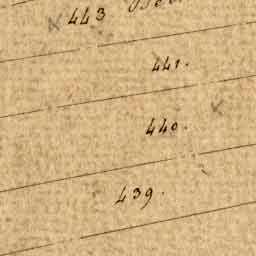 443
441.
440.
439.